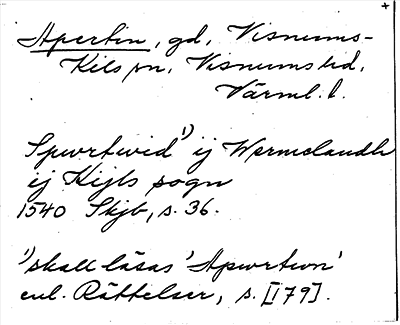 +
Apertin, gd, Visnums-
Kils sn, Visnums hd,
Värml. l.
Spwrtwid¹⁾ ij Wermelandh
ij Kijls sogn
1540 Skjb, s. 36.
¹⁾skall läsas 'Apwrtwn'
enl. Rättelser, s. [I79].